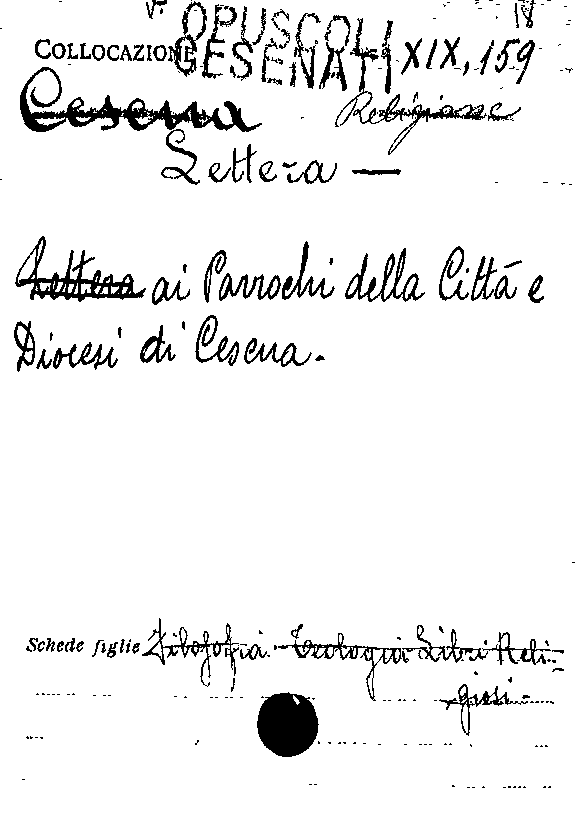 OPUSCOLI
COLLOCAZIONE CESENATI XIX, 159
Cesena Religione
Lettera —
Lettera ai Parrochi della Città e
Diocesi di Cesena.
Schede figlie Filosofia - Teologia Libri Reli-
giosi -